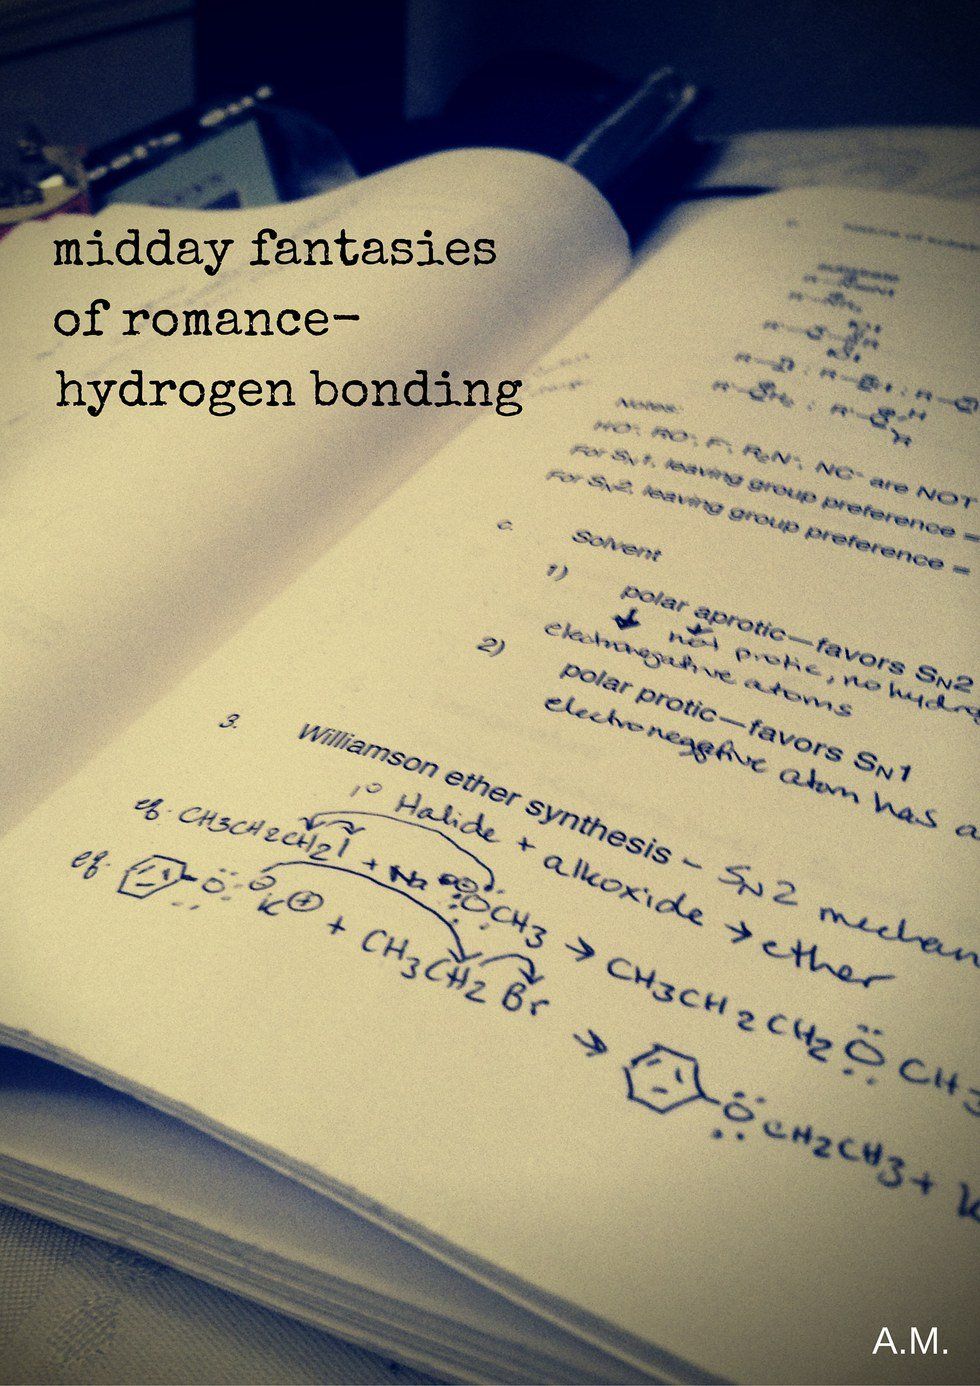 midday fantasies
of romance-
hydrogen bonding
Notes:
HO⁻, RO⁻, F⁻, R₂N⁻, NC⁻ are NOT
For SN1, leaving group preference =
For SN2, leaving group preference =
c. Solvent
1) polar aprotic—favors SN2
not protic, no hydro
electronegative atoms
2) polar protic—favors SN1
electronegative atom has a
3. Williamson ether synthesis - SN2 mechan
1° Halide + alkoxide → ether
eg. CH3CH2CH2I + Na⊕ ⊖OCH3 → CH3CH2CH2OCH3
eg. O⊖ K⊕ + CH3CH2Br → OCH2CH3 + K
A.M.